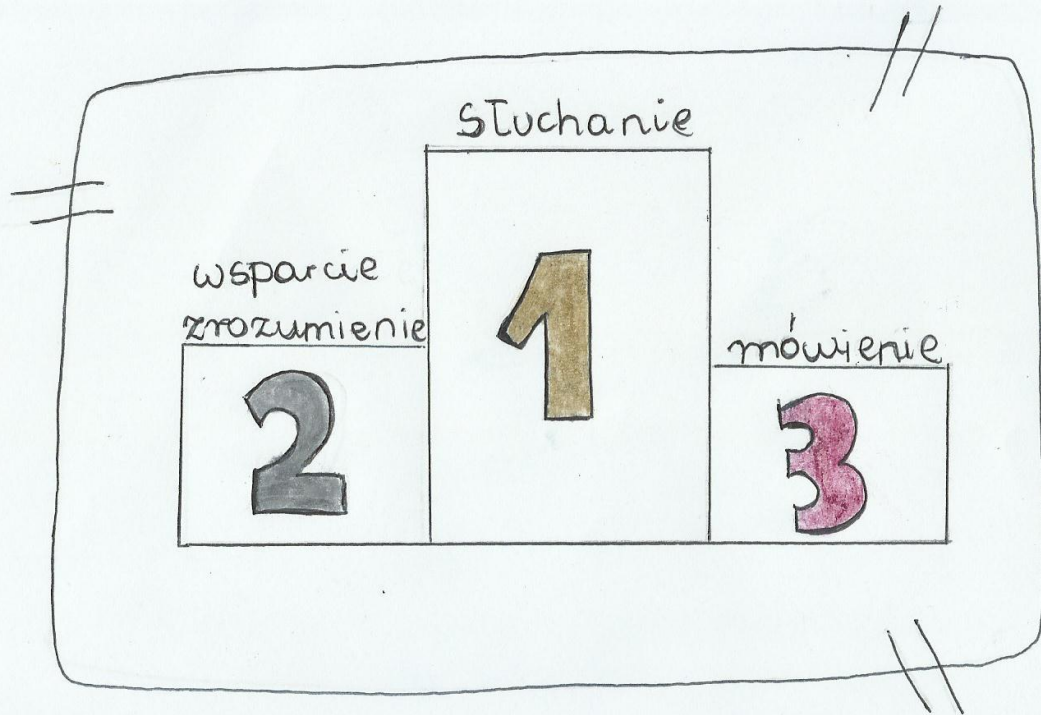 słuchanie
wsparcie
zrozumienie
mówienie
1
2
3